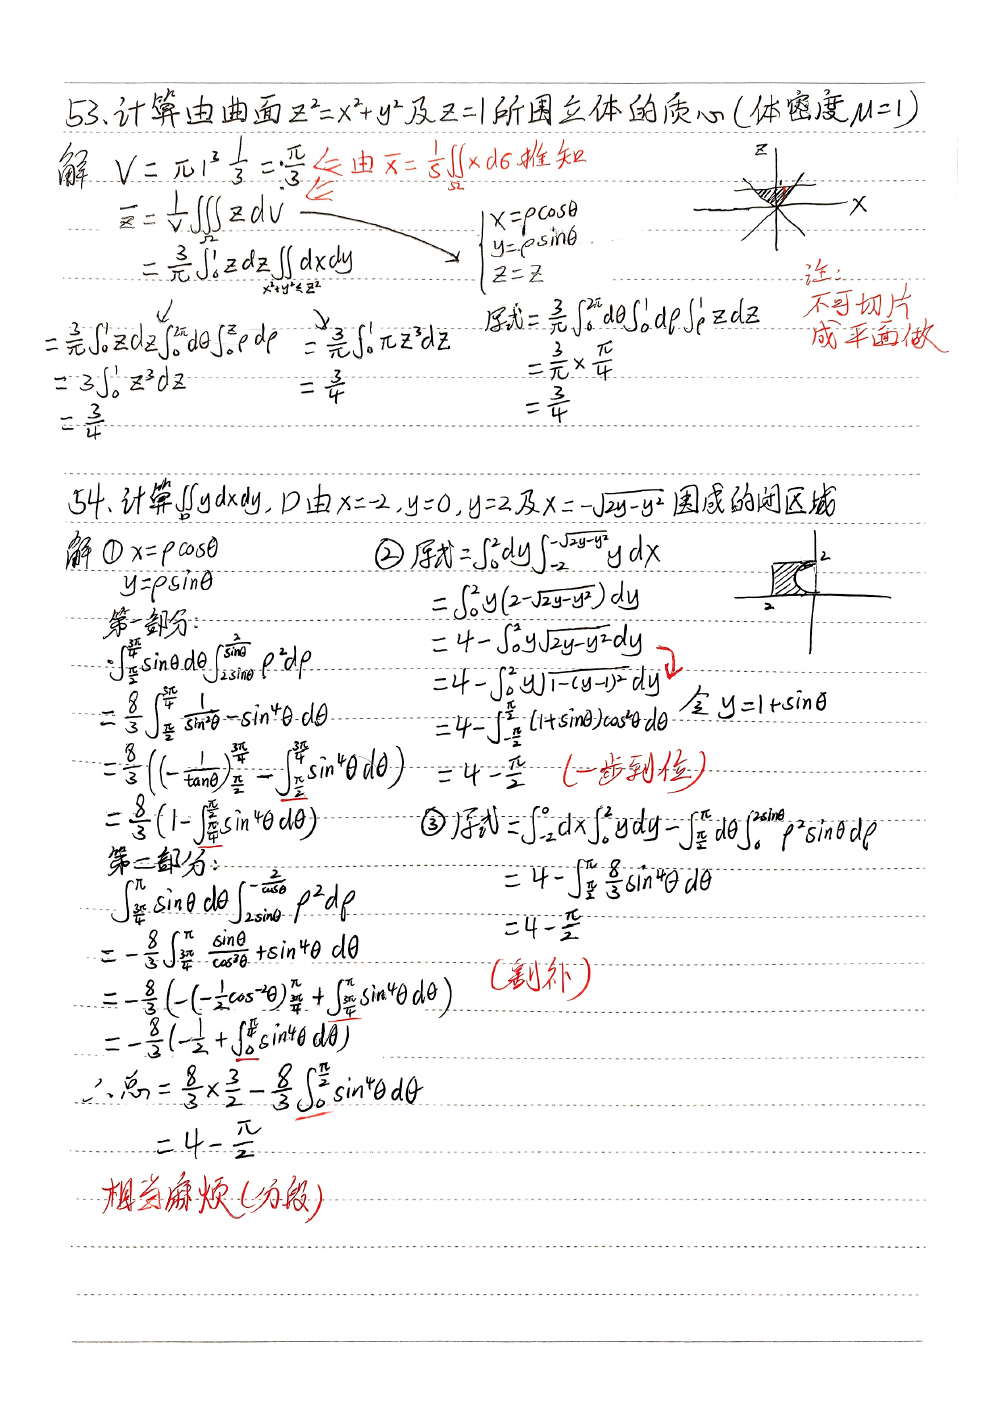 53.计算由曲面z²=x²+y²及z=1所围立体的质心(体密度μ=1)
解 V = π1³ 1/3 = π/3 ⇐ 由 x̄ = 1/S ∬_Ω x dσ 推知
z̄ = 1/V ∭_Ω z dv
= 3/π ∫₀¹ z dz ∬_{x²+y²≤z²} dxdy
= 3/π ∫₀¹ z dz ∫₀^{2π} dθ ∫₀^z ρ dρ
= 3 ∫₀¹ z³ dz
= 3/4
= 3/π ∫₀¹ π z³ dz
= 3/4
x = ρcosθ
y = ρsinθ
z = z
原式 = 3/π ∫₀^{2π} dθ ∫₀¹ dρ ∫_ρ¹ z dz
= 3/π × π/4
= 3/4
z
x
注:
不可切片
成平面做
54.计算∬_D y dxdy, D由x=-2, y=0, y=2及x=-√(2y-y²)围成的闭区域
解 ① x = ρcosθ
y = ρsinθ
第一部分:
∫_{π/2}^{3π/4} sinθ dθ ∫_{2sinθ}^{2/sinθ} ρ² dρ
= 8/3 ∫_{π/2}^{3π/4} 1/sin²θ - sin⁴θ dθ
= 8/3 ((-1/tanθ)_{π/2}^{3π/4} - ∫_{π/2}^{3π/4} sin⁴θ dθ)
= 8/3 (1 - ∫_{π/4}^{π/2} sin⁴θ dθ)
第二部分:
∫_{3π/4}^{π} sinθ dθ ∫_{2sinθ}^{-2/cosθ} ρ² dρ
= -8/3 ∫_{3π/4}^{π} sinθ/cos³θ + sin⁴θ dθ
= -8/3 (-(-1/2 cos⁻²θ)_{3π/4}^{π} + ∫_{3π/4}^{π} sin⁴θ dθ)
= -8/3 (-1/2 + ∫₀^{π/4} sin⁴θ dθ)
∴ 总 = 8/3 × 3/2 - 8/3 ∫₀^{π/2} sin⁴θ dθ
= 4 - π/2
相当麻烦(分段)
② 原式 = ∫₀² dy ∫_{-2}^{-√(2y-y²)} y dx
= ∫₀² y(2-√(2y-y²)) dy
= 4 - ∫₀² y√(2y-y²) dy
= 4 - ∫₀² y√(1-(y-1)²) dy
令 y = 1+sinθ
= 4 - ∫_{-π/2}^{π/2} (1+sinθ)cos²θ dθ
= 4 - π/2 (一步到位)
③ 原式 = ∫_{-2}^0 dx ∫₀² y dy - ∫_{π/2}^{π} dθ ∫₀^{2sinθ} ρ² sinθ dρ
= 4 - ∫_{π/2}^{π} 8/3 sin⁴θ dθ
= 4 - π/2
(割补)
2
2